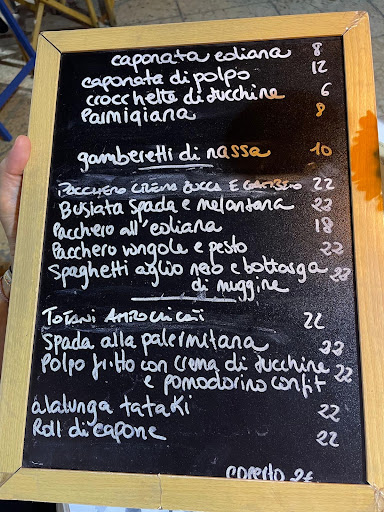 caponata eoliana 8
caponata di polpo 12
crocchette di zucchine 6
Parmigiana 8
gamberetti di nassa 10
PACCHERO CREMA ZUCCA E GAMBERO 22
Busiata spada e melanzana 22
Pacchero all'eoliana 18
Pacchero vongole e pesto 22
Spaghetti aglio nero e bottarga 22
di muggine
TOTANI 22
Spada alla palermitana 22
Polpo fritto con crema di zucchine 22
e pomodorino confit
alalunga tataki 22
Roll di capone 22
coperto 2€